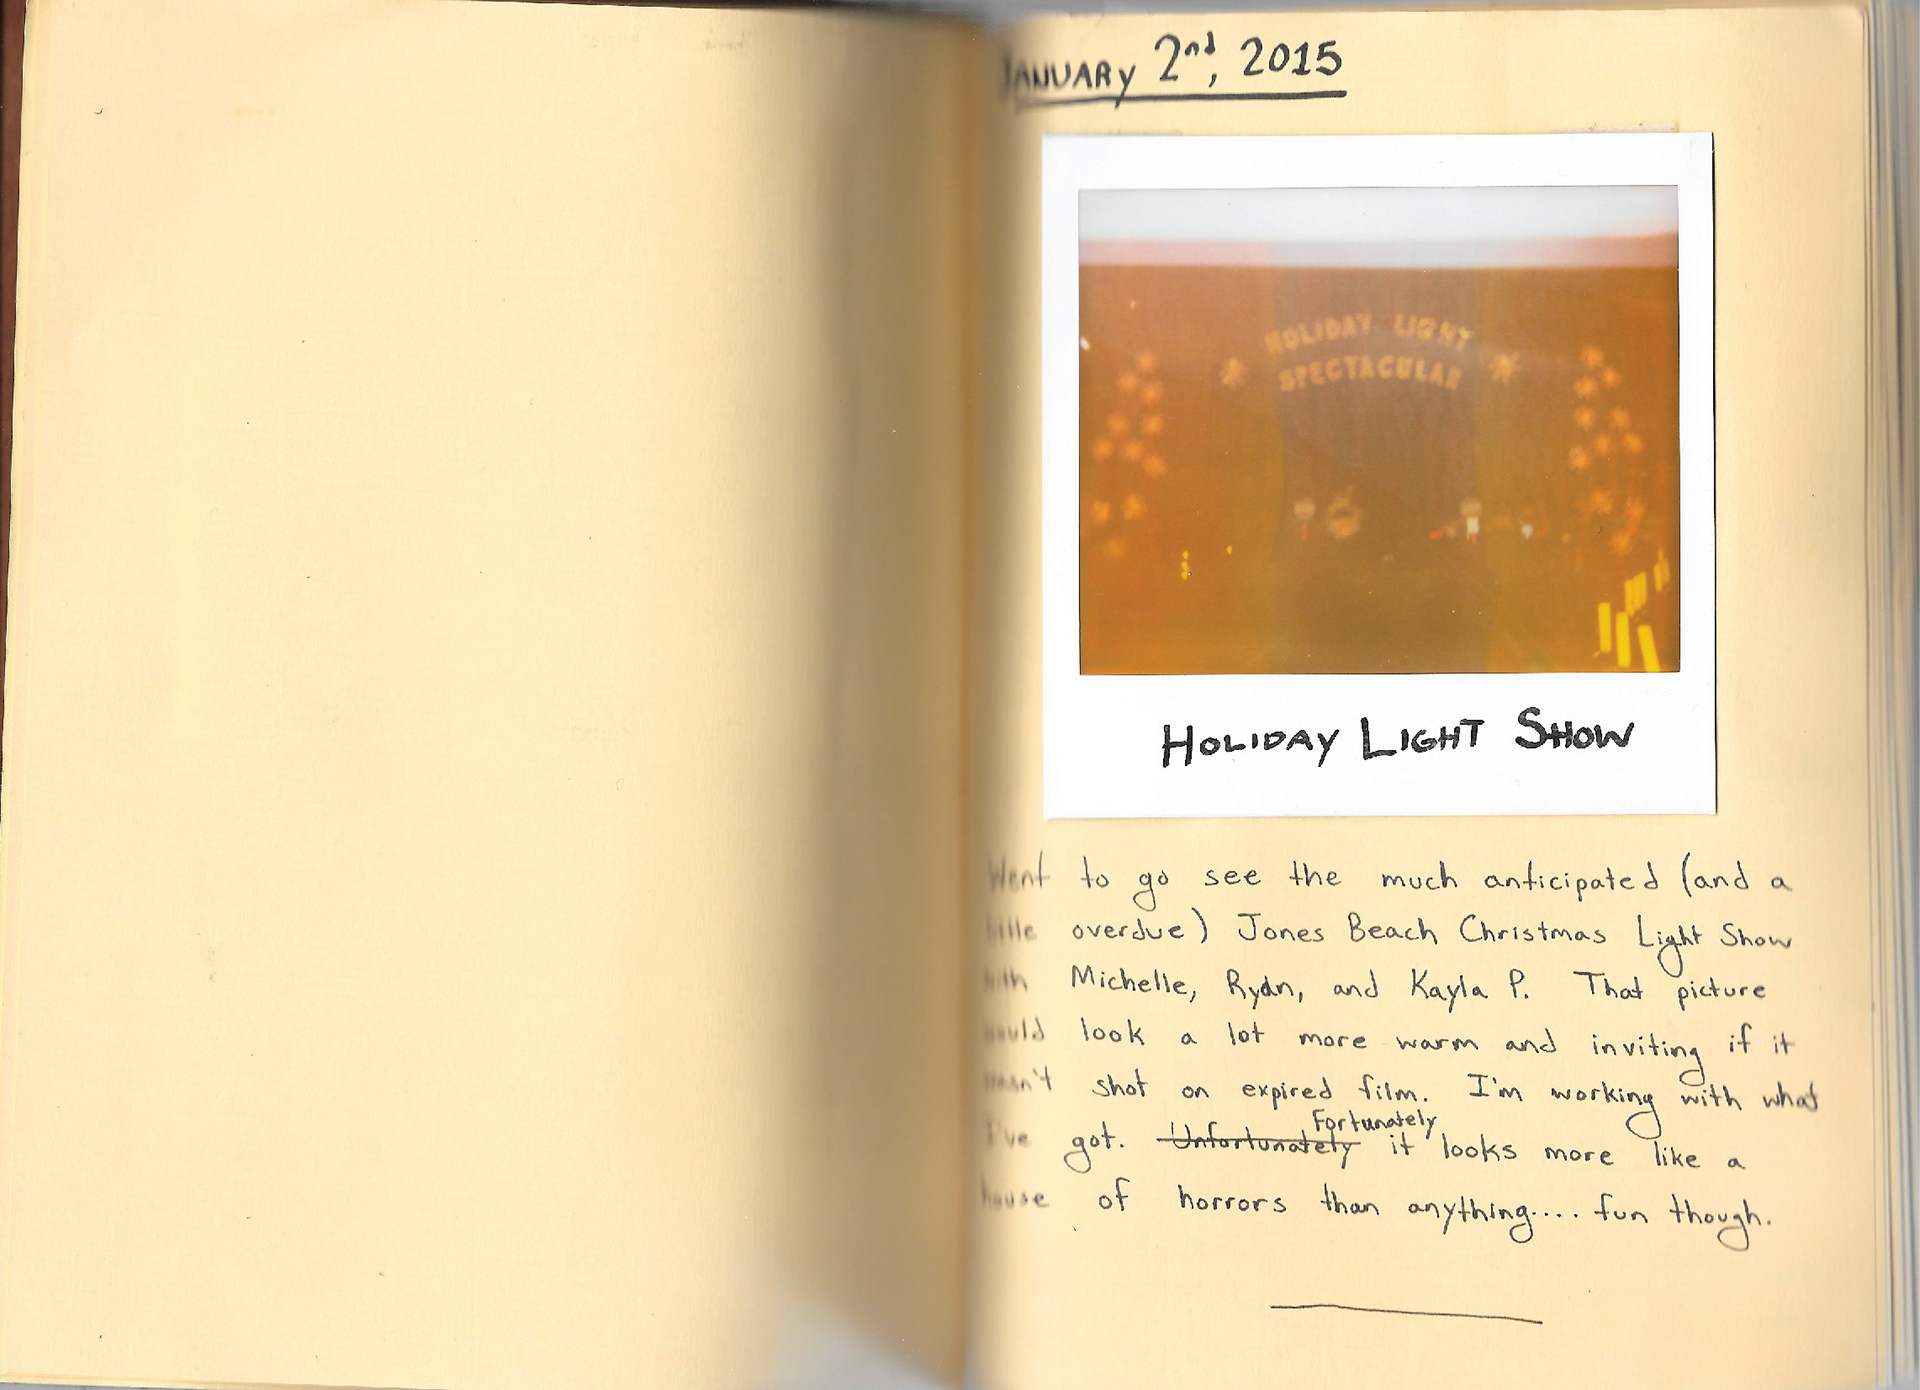 JANUARY 2nd, 2015
HOLIDAY LIGHT
SPECTACULAR
HOLIDAY LIGHT SHOW
Went to go see the much anticipated (and a
little overdue) Jones Beach Christmas Light Show
with Michelle, Ryan, and Kayla P. That picture
would look a lot more warm and inviting if it
wasn't shot on expired film. I'm working with what
Fortunately
I've got. Unfortunately it looks more like a
house of horrors than anything.... fun though.